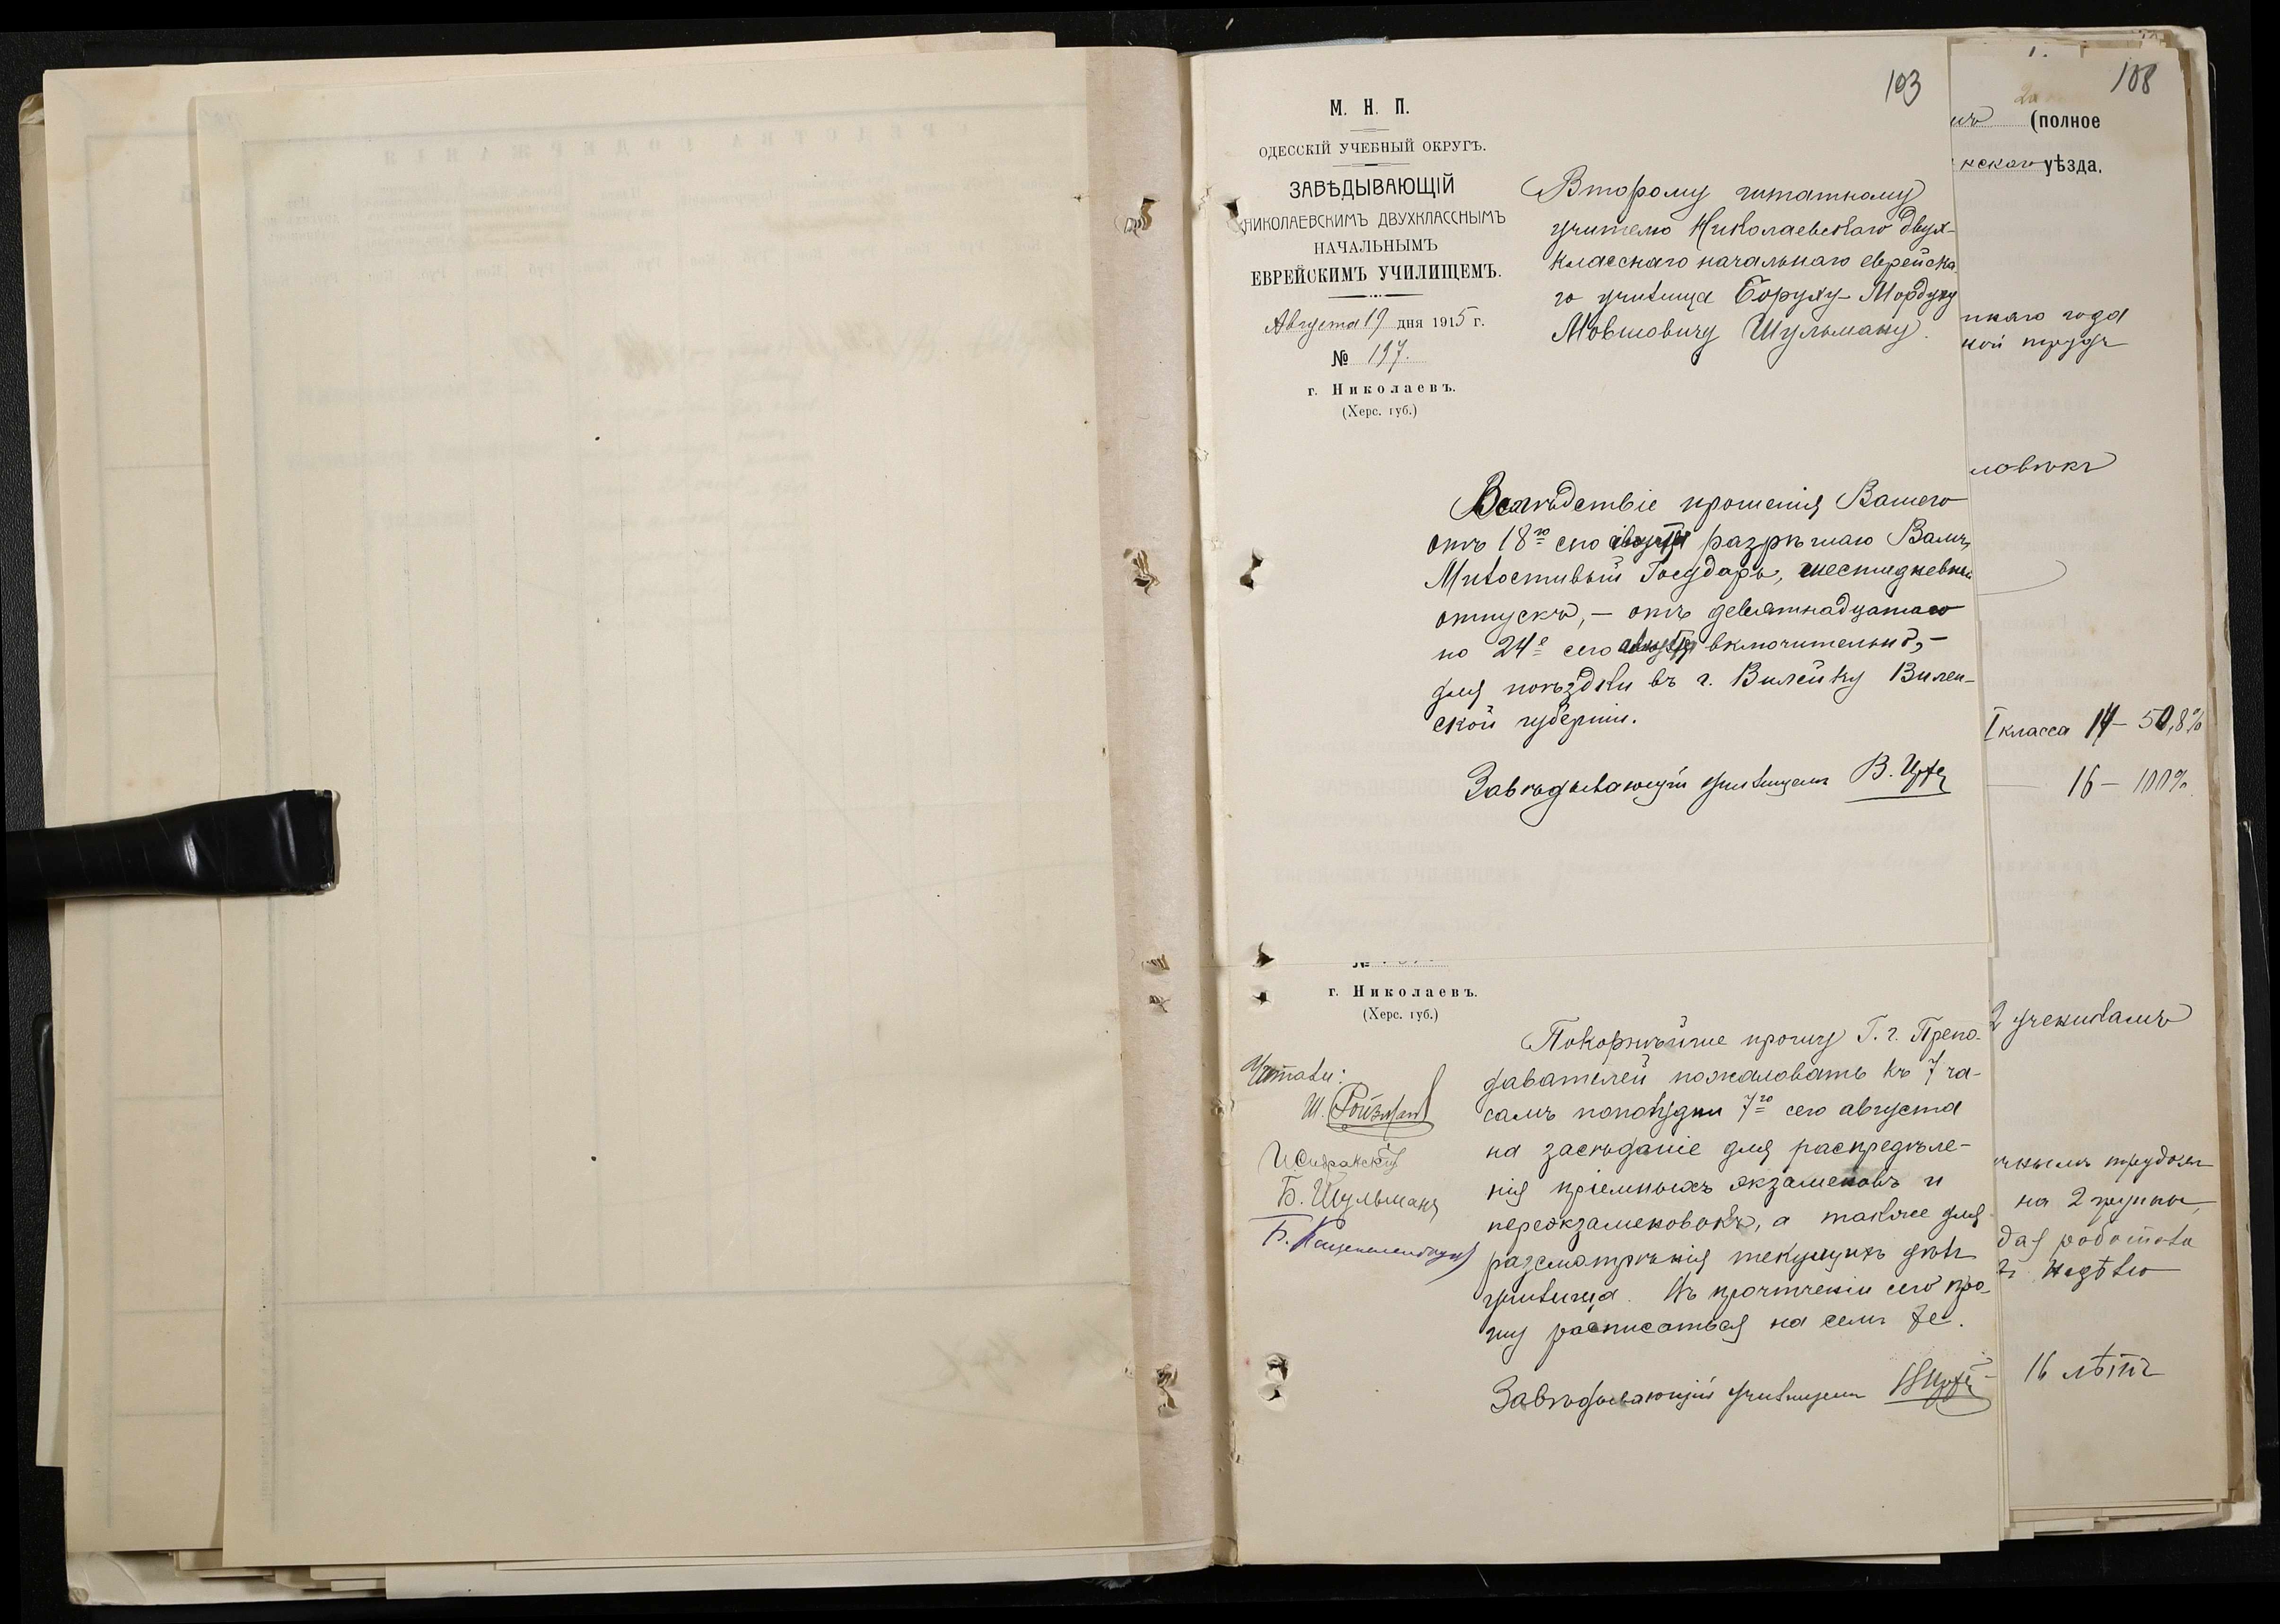 103
М. Н. П.
ОДЕССКІЙ УЧЕБНЫЙ ОКРУГЪ.
ЗАВѢДЫВАЮЩІЙ
НИКОЛАЕВСКИМЪ ДВУХКЛАССНЫМЪ
НАЧАЛЬНЫМЪ
ЕВРЕЙСКИМЪ УЧИЛИЩЕМЪ.
Августа 19 дня 1915 г.
№ 197.
г. Николаевъ.
(Херс. губ.)
Второму штатному
учителю Николаевскаго двух-
класснаго начальнаго еврейска-
го училища Боруху-Мордуху
Мовшовичу Шульману.
Вслѣдствіе прошенія Вашего
отъ 18го сего августа разрѣшаю Вамъ,
Милостивый Государь, шестидневный
отпускъ, – отъ девятнадцатаго
по 24е сего августа включительно, –
для поѣздки въ г. Вилейку Вилен-
ской губерніи.
Завѣдывающій училищемъ В.
№
г. Николаевъ.
(Херс. губ.)
Читали:
Ш. Ройзман
Б. Шульманъ
Б.
Покорнѣйше прошу Г. г. Препо-
давателей пожаловать къ 7 ча-
самъ пополудни 7го сего августа
на засѣданіе для распредѣле-
нія пріемныхъ экзаменовъ и
переэкзаменовокъ, а также для
разсмотрѣнія текущихъ дѣлъ
училища. Въ прочтеніи сего про-
шу расписаться на семъ же.
Завѣдывающій училищемъ
108
(полное
нскаго уѣзда.
года
ловѣкъ
I класса 14 – 50,8%
16 – 100%
2 ученикамъ
на 2 группы,
недѣлю
16 лѣтъ